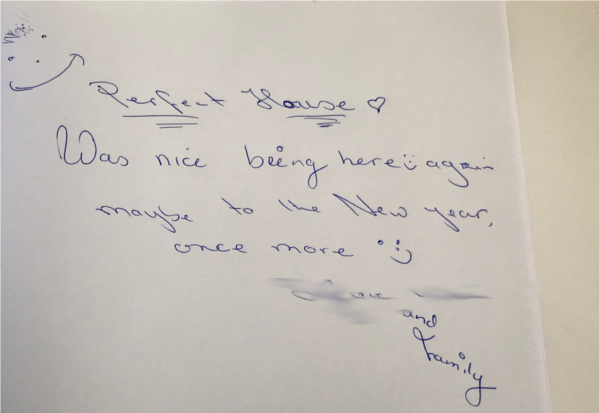 Perfect House ♡
Was nice being here :) again
maybe to the New year,
once more :)
and
family